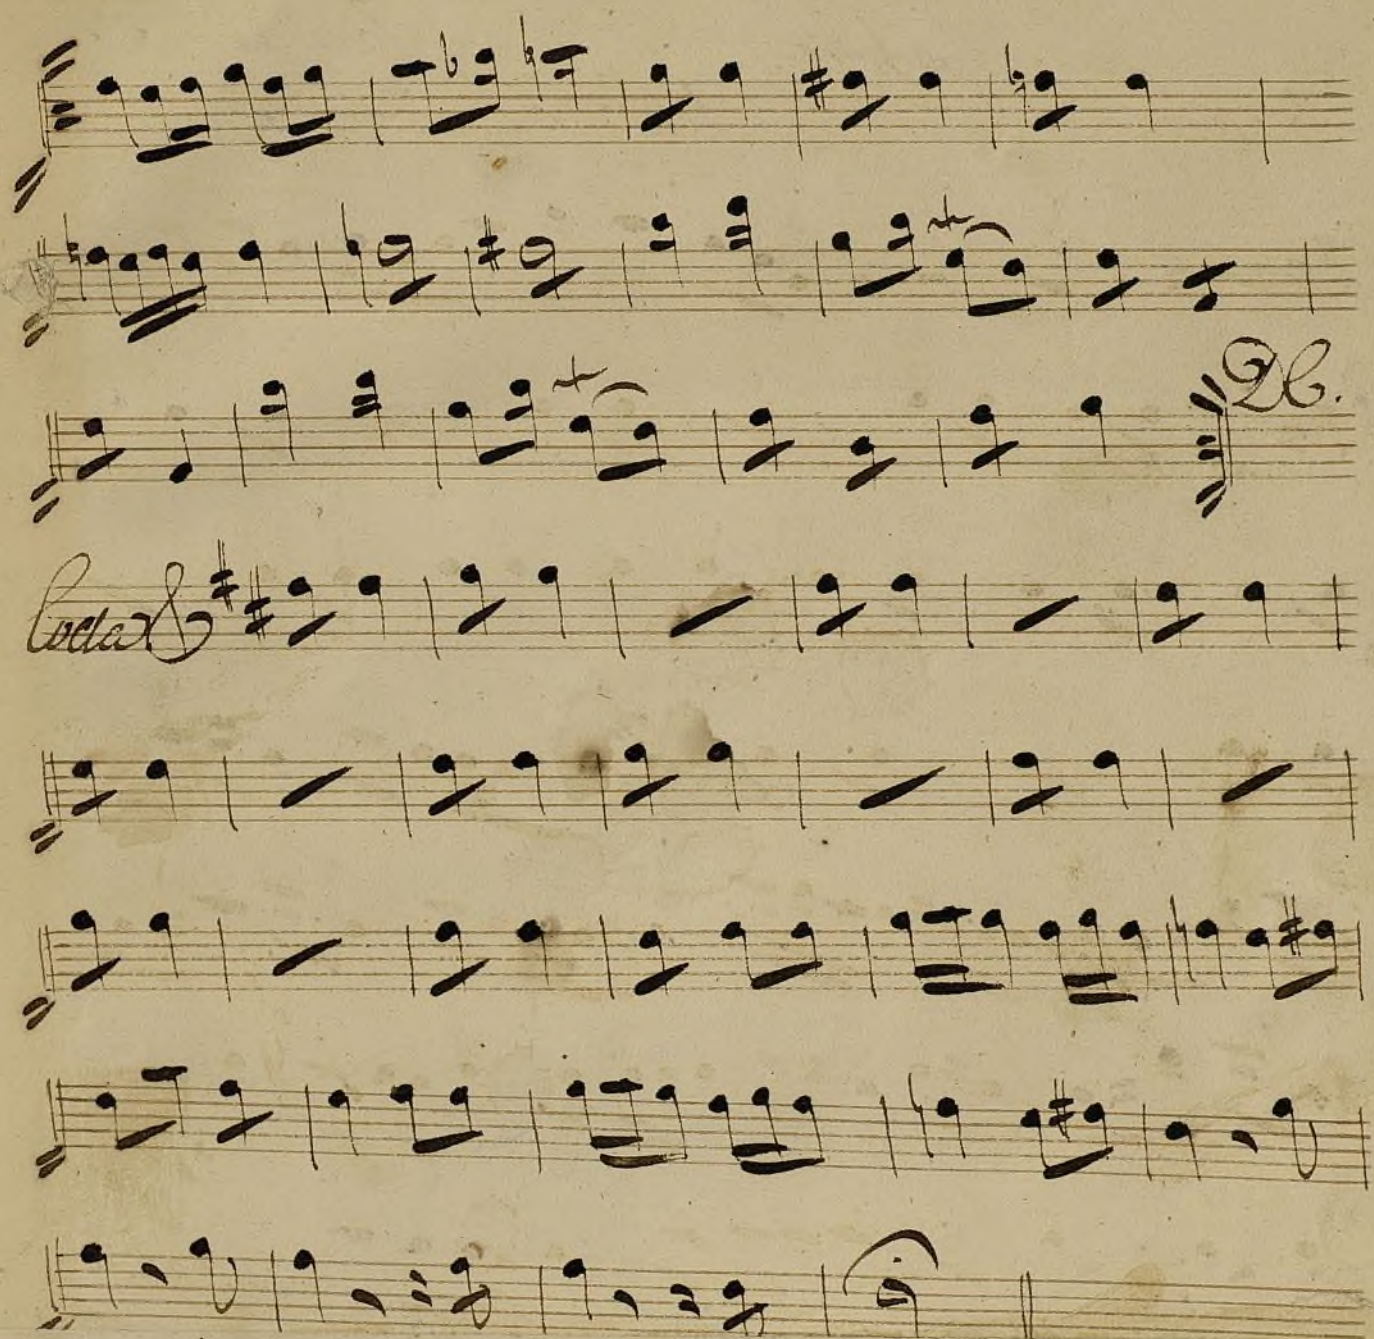 DC.
Coda